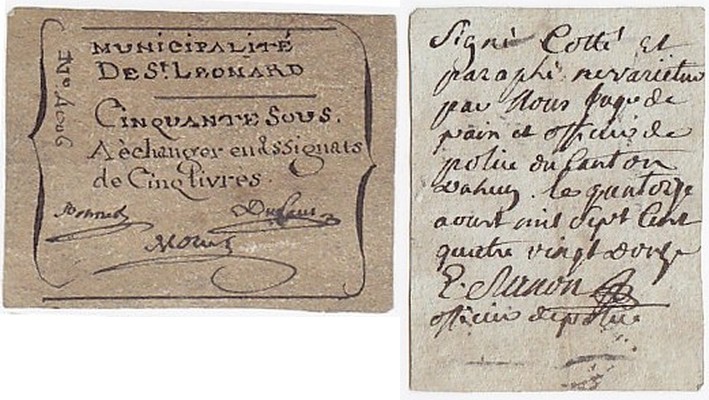 MUNICIPALITÉ
DE St. LEONARD
CINQUANTE SOUS.
A échanger en assignats
de Cinq Livres.
No.
Signé Cotté et
paraphé ne varietur
par Nous Juge de
paix et officier de
police du Canton
le quatorze
aoust mil sept Cent
quatre vingt douze
officier de police